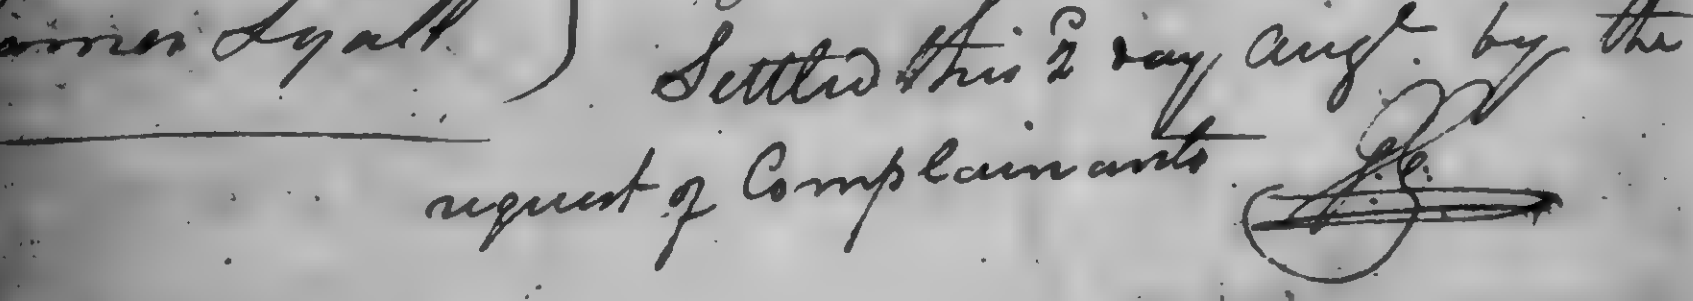 Lyall ) Settled this 2 day Augt. by the
request of Complainants